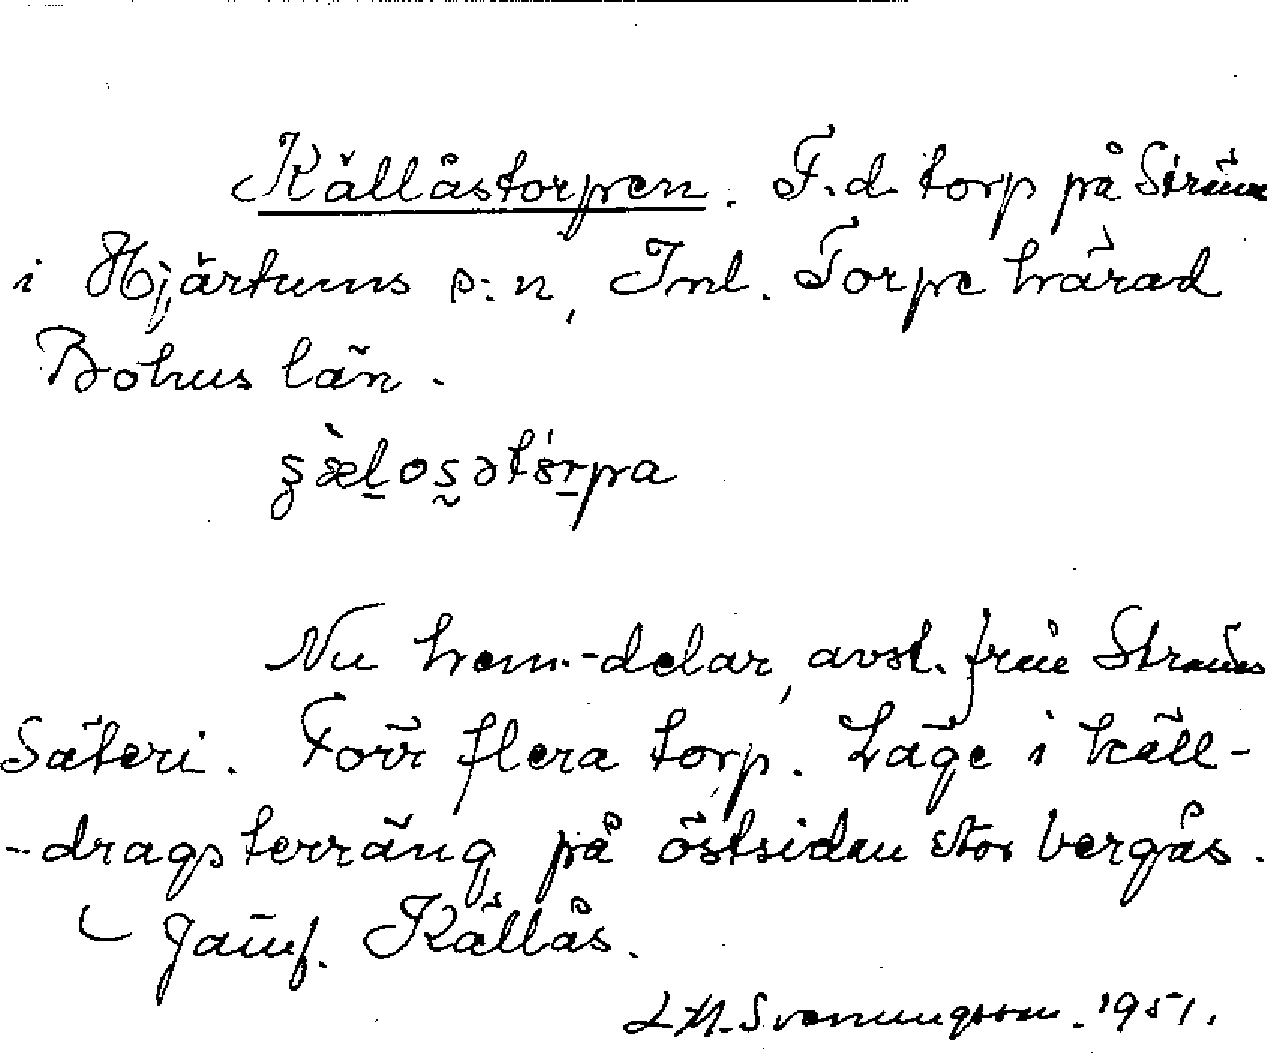 Källåstorpen. F.d. torp på Ström
i Hjärtums s:n, Inl. Torpe härad
Bohus län.
Nu hem.-delar, avst. från Ströms
Säteri. Förr flera torp. Läge i käll-
-dragsterräng på östsidan stor bergås.
Jämf. Källås.
L.M. Svenungsson. 1951.